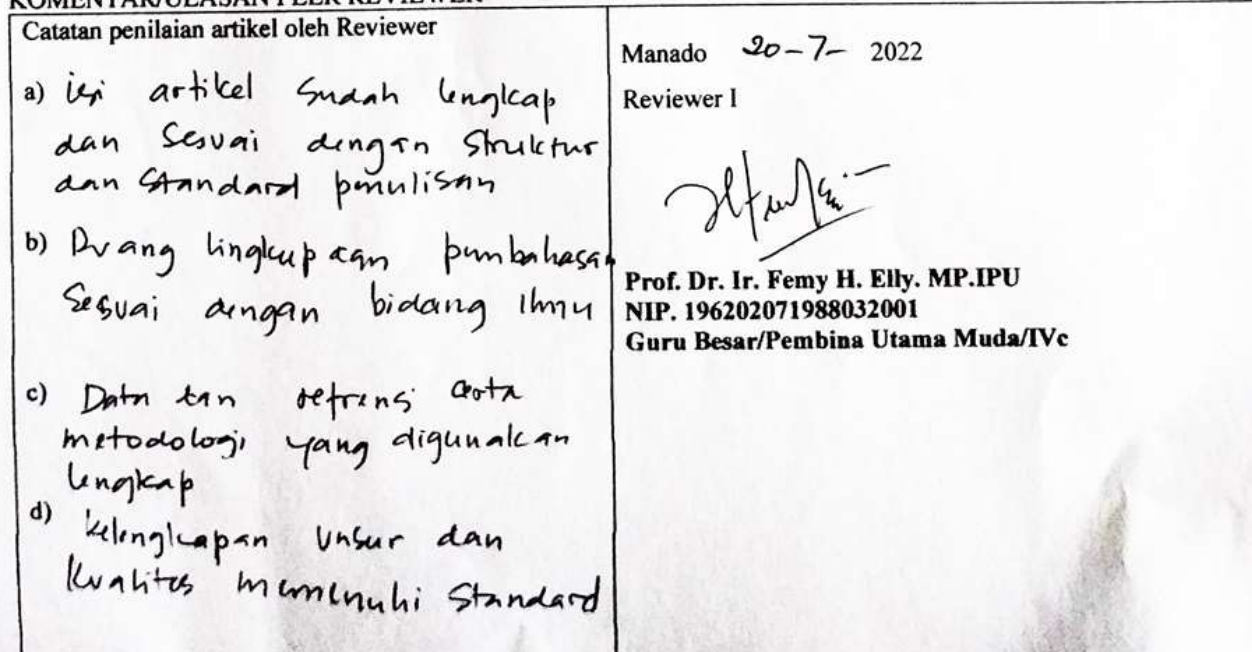 KOMENTAR/ULASAN PEER REVIEWER
Catatan penilaian artikel oleh Reviewer
a) isi artikel sudah lengkap
dan Sesuai dengan Struktur
dan Standard penulisan
b) Ruang lingkup dan pembahasan
Sesuai dengan bidang Ilmu
c) Data dan refrensi serta
metodologi yang digunakan
lengkap
d) kelengkapan Unsur dan
Kualitas memenuhi Standard
Manado 20-7- 2022
Reviewer I
Prof. Dr. Ir. Femy H. Elly. MP.IPU
NIP. 196202071988032001
Guru Besar/Pembina Utama Muda/IVc